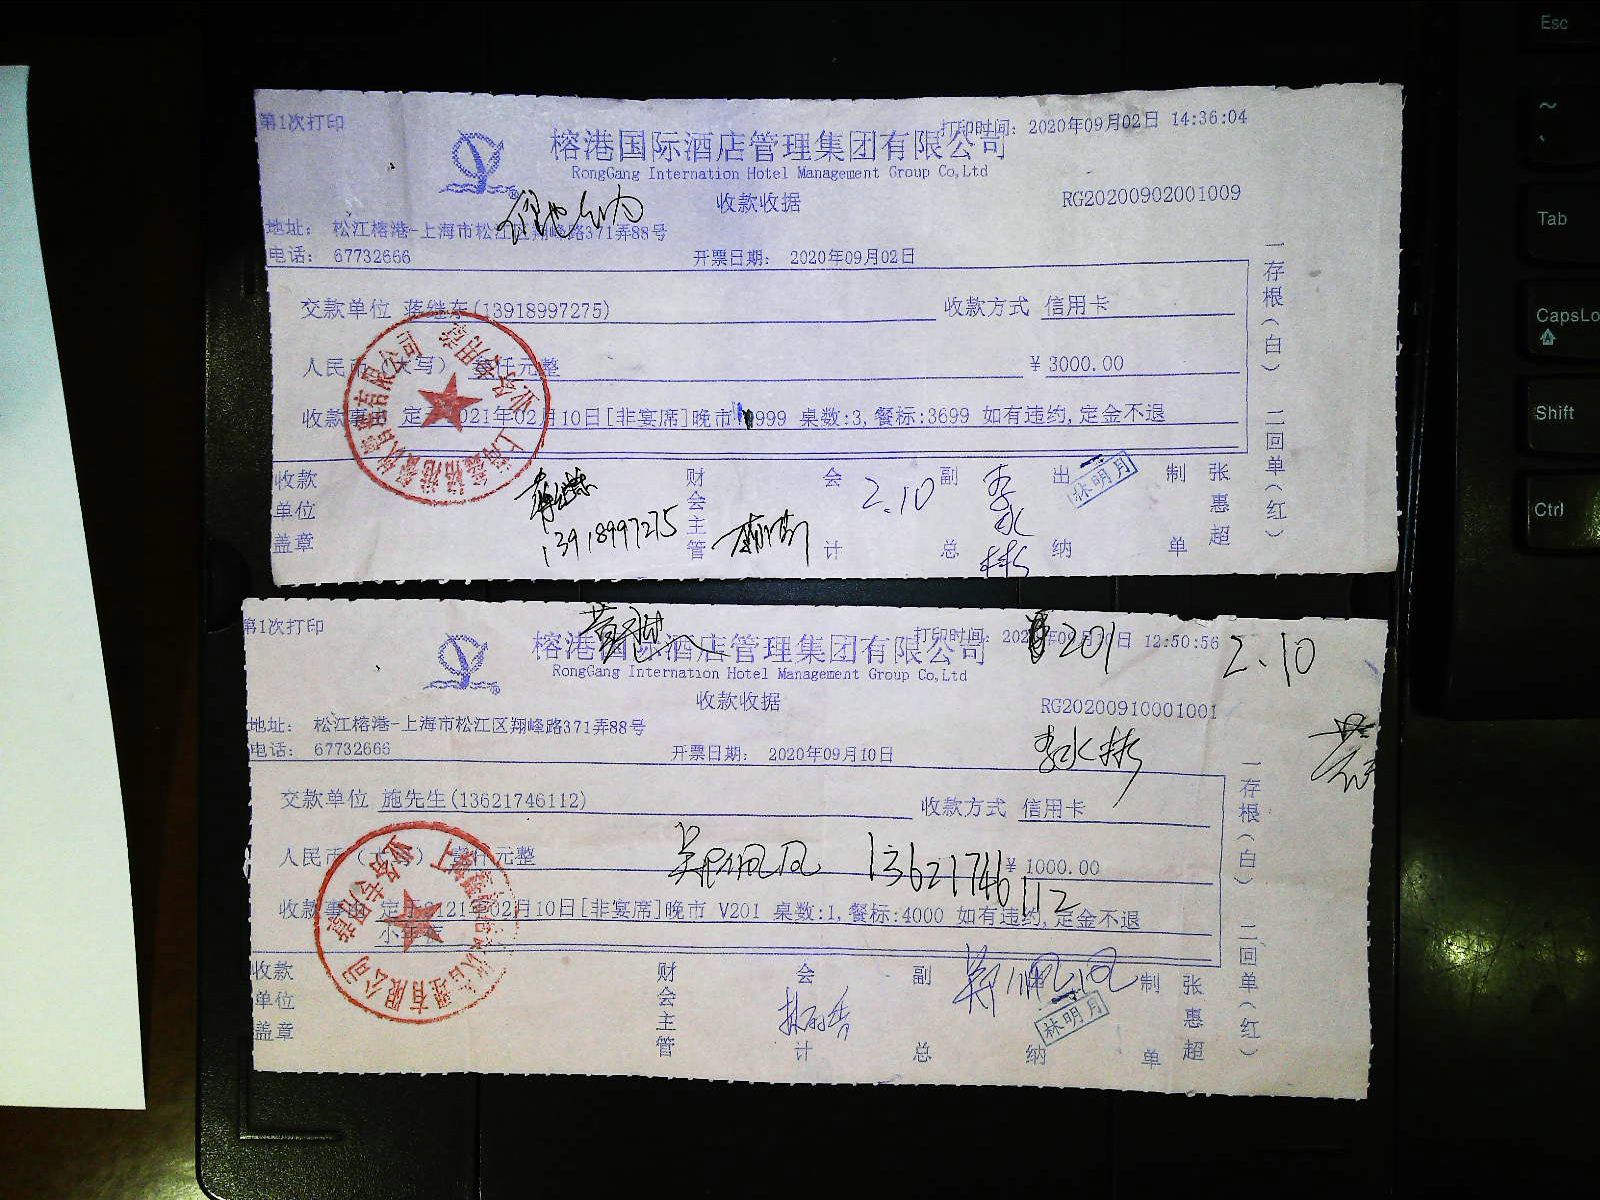 第1次打印
打印时间: 2020年09月02日 14:36:04
榕港国际酒店管理集团有限公司
RongGang Internation Hotel Management Group Co,Ltd
收款收据
RG20200902001009
地址: 松江榕港-上海市松江区翔峰路371弄88号
电话: 67732666
开票日期: 2020年09月02日
交款单位 蒋继东(13918997275)
收款方式 信用卡
人民币(大写) 仟元整
¥ 3000.00
收款事由 定于2021年02月10日[非宴席]晚市 999 桌数:3,餐标:3699 如有违约,定金不退
一存根(白) 二回单(红)
收款单位盖章
13918997275
财会主管
会计
2.10
副总
李水彬
出纳
林明月
制单
张惠超
第1次打印
打印时间: 09月10日 12:50:56
201
2.10
榕港国际酒店管理集团有限公司
RongGang Internation Hotel Management Group Co,Ltd
收款收据
RG20200910001001
地址: 松江榕港-上海市松江区翔峰路371弄88号
电话: 67732666
开票日期: 2020年09月10日
李水彬
交款单位 施先生(13621746112)
收款方式 信用卡
人民币(大写) 壹仟元整
13621746112
¥ 1000.00
收款事由 定于2121年02月10日[非宴席]晚市 V201 桌数:1,餐标:4000 如有违约,定金不退
一存根(白) 二回单(红)
收款单位盖章
财会主管
会计
副总
纳
林明月
制单
张惠超
Esc
~
Tab
CapsLo
Shift
Ctrl